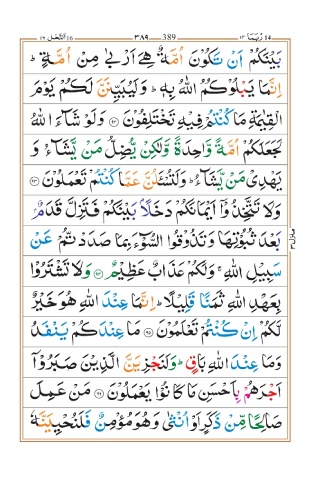 ربما ١٤ ٣٨٩ 389 النحل 16
بَيْنَكُمْ اَنْ تَكُوْنَ اُمَّةٌ هِيَ اَرْبٰى مِنْ اُمَّةٍ ؕ
اِنَّمَا يَبْلُوْكُمُ اللّٰهُ بِهٖ ؕ وَلَيُبَيِّنَنَّ لَكُمْ يَوْمَ
الْقِيٰمَةِ مَا كُنْتُمْ فِيْهِ تَخْتَلِفُوْنَ ﴿۹۲﴾ وَلَوْ شَآءَ اللّٰهُ
لَجَعَلَكُمْ اُمَّةً وَّاحِدَةً وَّلٰكِنْ يُّضِلُّ مَنْ يَّشَآءُ وَ
يَهْدِيْ مَنْ يَّشَآءُ ؕ وَلَتُسْئَلُنَّ عَمَّا كُنْتُمْ تَعْمَلُوْنَ ﴿۹۳﴾
وَلَا تَتَّخِذُوْٓا اَيْمَانَكُمْ دَخَلًاۢ بَيْنَكُمْ فَتَزِلَّ قَدَمٌۢ
بَعْدَ ثُبُوْتِهَا وَتَذُوْقُوا السُّوْٓءَ بِمَا صَدَدْتُّمْ عَنْ
سَبِيْلِ اللّٰهِ ۚ وَلَكُمْ عَذَابٌ عَظِيْمٌ ﴿۹۴﴾ وَلَا تَشْتَرُوْا
بِعَهْدِ اللّٰهِ ثَمَنًا قَلِيْلًا ؕ اِنَّمَا عِنْدَ اللّٰهِ هُوَ خَيْرٌ
لَّكُمْ اِنْ كُنْتُمْ تَعْلَمُوْنَ ﴿۹۵﴾ مَا عِنْدَكُمْ يَنْفَدُ
وَمَا عِنْدَ اللّٰهِ بَاقٍ ؕ وَلَنَجْزِيَنَّ الَّذِيْنَ صَبَرُوْٓا
اَجْرَهُمْ بِاَحْسَنِ مَا كَانُوْا يَعْمَلُوْنَ ﴿۹۶﴾ مَنْ عَمِلَ
صَالِحًا مِّنْ ذَكَرٍ اَوْ اُنْثٰى وَهُوَ مُؤْمِنٌ فَلَنُحْيِيَنَّهٗ